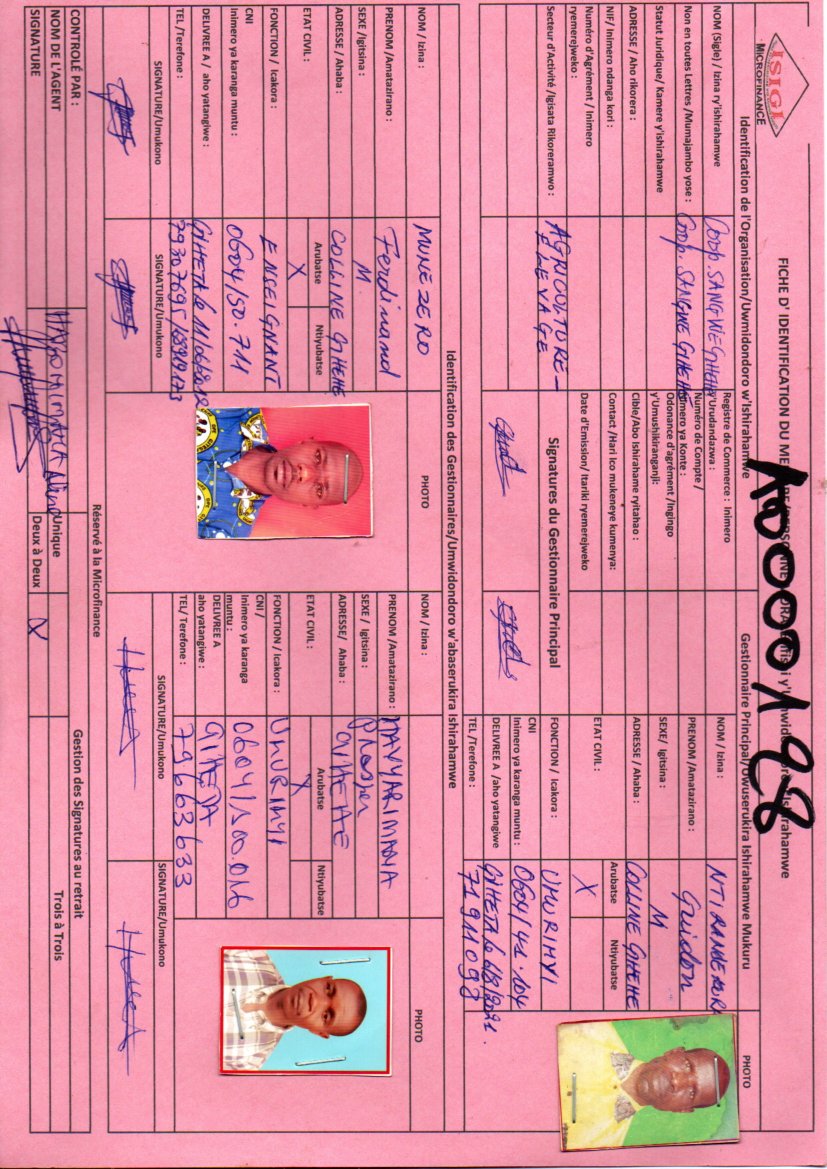 ISIGI
MICROFINANCE
FICHE D' IDENTIFICATION DU
A0000198
Identification de l'Organisation/Uwmidondoro w'Ishirahamwe
Gestionnaire Principal/Uwuserukira Ishirahamwe Mukuru
PHOTO
NOM (Sigle) / Izina ry'ishirahamwe
Coop. SANGWE GIHEHE
Non en toutes Lettres /Mumajambo yose :
Coop. SANGWE GIHEHE
Statut Juridique/ Kamere y'ishirahamwe
ADRESSE / Aho rikorera :
NIF/ Inimero ndanga kori :
Numéro d'Agrément / Inimero
ryemerejweko :
Secteur d'Activité /Igisata Rikoreramwo :
AGRICULTURE-
ELEVAGE
Registre de Commerce : Inimero
y'Urudandazwa :
Numéro de Compte /
Inimero ya Konte :
Odonance d'agrément /Ingingo
y'Umushikiranganji:
Cible/Abo Ishirahame ryitaho :
Contact /Hari Ico mukeneye kumenya:
Date d'Emission/ Itariki ryemerejweko
Signatures du Gestionnaire Principal
NOM / Izina :
PRENOM /Amatazirano :
Guidon
SEXE/ Igitsina :
M
ADRESSE / Ahaba :
COLLINE GIHEHE
ETAT CIVIL :
Arubatse
Ntiyubatse
X
FONCTION / Icakora :
UMURIMYI
CNI
Inimero ya karanga muntu :
0604/41.104
DELIVREE A /aho yatangiwe
GIHETA le
TEL /Terefone :
71911098
Identification des Gestionnaires/Umwidondoro w'abaserukira Ishirahamwe
NOM / Izina :
MUNEZERO
PHOTO
PRENOM /Amatazirano :
Ferdinand
SEXE /Igitsina :
M
ADRESSE / Ahaba :
COLLINE GIHEHE
ETAT CIVIL :
Arubatse
Ntiyubatse
X
FONCTION / Icakora :
ENSEIGNANT
CNI
Inimero ya karanga muntu :
0604/50.711
DELIVREE A / aho yatangiwe :
GIHETA le
TEL /Terefone :
SIGNATURE/Umukono
SIGNATURE/Umukono
NOM / Izina :
PHOTO
PRENOM /Amatazirano :
Prosper
SEXE / Igitsina :
ADRESSE/ Ahaba :
GIHEHE
ETAT CIVIL :
Arubatse
Ntiyubatse
X
FONCTION / Icakora :
UMURIMYI
CNI /
Inimero ya karanga
muntu :
0604/100.016
DELIVREE A
aho yatangiwe :
GIHETA
TEL/ Terefone :
79663633
SIGNATURE/Umukono
SIGNATURE/Umukono
Réservé à la Microfinance
CONTROLÉ PAR :
Gestion des Signatures au retrait
NOM DE L'AGENT
Unique
Trois à Trois
SIGNATURE
Deux à Deux
X